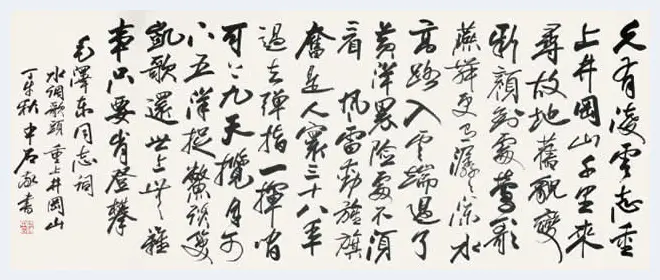 久有凌雲志重
上井岡山千里來
尋故地舊貌變
新顏到處鶯歌
燕舞更有潺〻流水
高路入雲端過了
黃洋界險處不須
看 風雷動旌旗
奮是人寰三十八年
過去彈指一揮間
可上九天攬月可
下五洋捉鱉談笑
凱歌還世上無難
事只要肯登攀
毛澤東同志詞
水調歌頭 重上井岡山
秋中石敬書